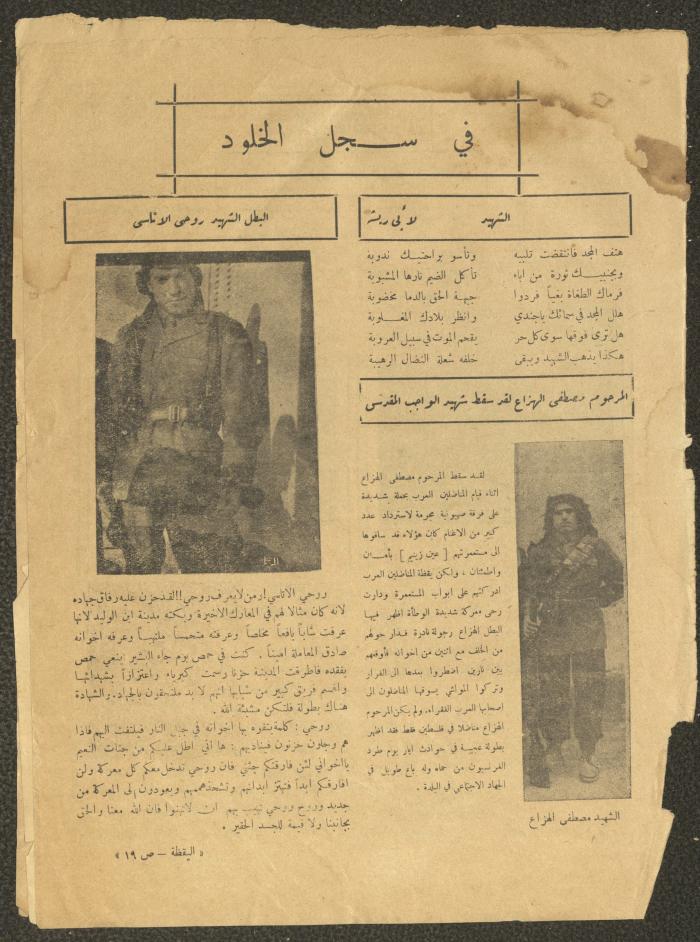 في سجل الخلود
الشهيد لأبي ريشة
هتف المجد فانتفضت تلبيه وتأسو براحتيك ندوبه
وبجنبيك ثورة من اباء تأكل الضيم نارها المشبوبة
فرماك الطغاة بغياً فردوا جبهة الحق بالدما مخضوبة
هلل المجد في سمائك ياجندي وانظر بلادك المغلوبة
هل ترى فوقها سوى كل حر يقحم الموت في سبيل العروبة
هكذا يذهب الشهيد ويبقى خلفه شعلة النضال الرهيبة
المرحوم مصطفى الهزاع لقد سقط شهيد الواجب المقدس
لقد سقط المرحوم مصطفى الهزاع
اثناء قيام المناضلين العرب بحملة شديدة
على فرقة صهيونية مجرمة لاسترداد عدد
كبير من الاغنام كان هؤلاء قد ساقوها
الى مستعمرتهم [ عين زيتيم ] بأمان
واطمئنان ، ولكن يقظة المناضلين العرب
ادركتهم على ابواب المستعمرة ودارت
رحى معركة شديدة الوطأة اظهر فيها
البطل الهزاع رجولة نادرة فدار حولهم
من الخلف مع اثنين من اخوانه فأوقعهم
بين نارين اضطروا بعدها الى الفرار
وتركوا المواشي يسوقها المناضلون الى
اصحابها العرب الفقراء. ولم يكن المرحوم
الهزاع مناضلا في فلسطين فقط فقد اظهر
بطولة عجيبة في حوادث ايار يوم طرد
الفرنسيون من حماه وله باع طويل في
الجهاد الاجتماعي في البلدة .
الشهيد مصطفى الهزاع
البطل الشهيد روحي الاتاسي
روحي الاتاسي ! ومن لا يعرف روحي !! لقد حزن عليه رفاق جهاده
لانه كان مثالا لهم في المعارك الاخيرة وبكته مدينة ابن الوليد لانها
عرفت شاباً يافعاً مخلصاً وعرفته متحمساً ملتهباً وعرفه اخوانه
صادق المعاملة اميناً . كنت في حمص يوم جاء البشير لينعي حمص
بفقده فاطرقت المدينة حزنا رسمت كبرياء واعتزازاً بشهدائها
واقسم فريق كبير من شبابها انهم لا بد ملتحقون بالجهاد. والشهادة
هناك بطولة فلتكن مشيئة الله .
روحي : كلمة يتفوه بها اخوانه في جبل النار فيلتفت اليهم فاذا
هم وجلون حزنون فيناديهم : ها أني اطل عليكم من جنات النعيم
يا اخواني لئن فارقتكم جثتي فان روحي تدخل معكم كل معركة ولن
افارقكم ابداً فتهتز ابدانهم وتشحذ هممهم ويعودون الى المعركة من
جديد وروح روحي تهيب بهم ان لا تهنوا فان الله معنا والحق
بجانبنا ولا قيمة للجسد الحقير .
« اليقظة – ص ١٩ »